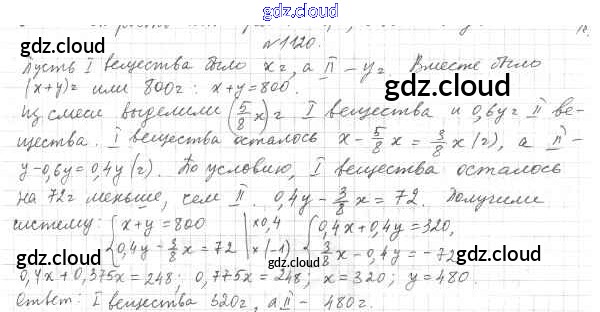 gdz.cloud
№1120.
Пусть I вещества было x г, а II – y г. Вместе было
(x+y) г или 800 г: x+y=800.
gdz.cloud
gdz.cloud
Из смеси выделили (5/8 x) г I вещества и 0,6y г II ве-
щества. I вещества осталось x - 5/8 x = 3/8 x (г), а II –
y-0,6y=0,4y (г). По условию, I вещества осталось
gdz.cloud
на 72 г меньше, чем II. 0,4y - 3/8 x = 72. Получили
систему: { x+y=800 | ×0,4 { 0,4x+0,4y=320,
0,4y - 3/8 x = 72 | ×(-1) 3/8 x - 0,4y = -72
gdz.cloud
gdz.cloud
0,4x+0,375x=248; 0,775x=248; x=320; y=480.
Ответ: I вещества 320 г, а II – 480 г.
gdz.cloud